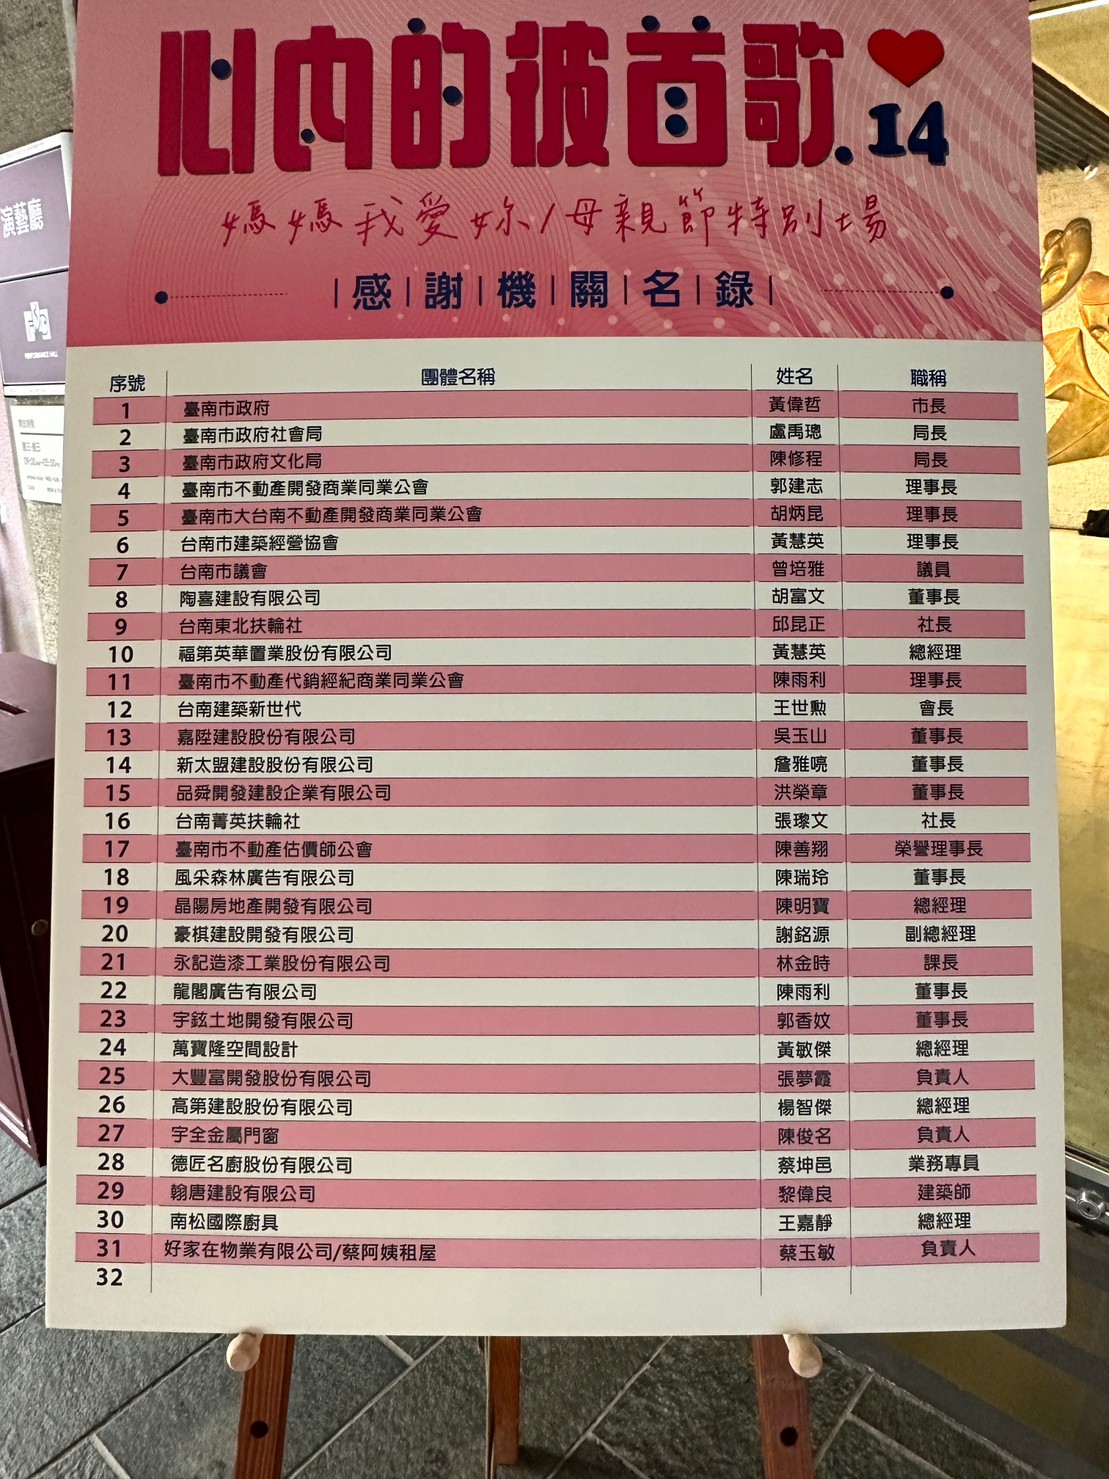 心內的彼首歌.14
媽媽我愛妳/母親節特別場
感謝機關名錄
演藝廳
PERFORMANCE HALL
序號 團體名稱 姓名 職稱
1 臺南市政府 黃偉哲 市長
2 臺南市政府社會局 盧禹璁 局長
3 臺南市政府文化局 陳修程 局長
4 臺南市不動產開發商業同業公會 郭建志 理事長
5 臺南市大台南不動產開發商業同業公會 胡炳昆 理事長
6 台南市建築經營協會 黃慧英 理事長
7 台南市議會 曾培雅 議員
8 陶喜建設有限公司 胡富文 董事長
9 台南東北扶輪社 邱昆正 社長
10 福第英華置業股份有限公司 黃慧英 總經理
11 臺南市不動產代銷經紀商業同業公會 陳雨利 理事長
12 台南建築新世代 王世勲 會長
13 嘉陞建設股份有限公司 吳玉山 董事長
14 新太盟建設股份有限公司 詹雅喨 董事長
15 品舜開發建設企業有限公司 洪榮章 董事長
16 台南菁英扶輪社 張瓈文 社長
17 臺南市不動產估價師公會 陳善翔 榮譽理事長
18 風采森林廣告有限公司 陳瑞玲 董事長
19 晶陽房地產開發有限公司 陳明寶 總經理
20 豪棋建設開發有限公司 謝銘源 副總經理
21 永記造漆工業股份有限公司 林金時 課長
22 龍閣廣告有限公司 陳雨利 董事長
23 宇鉉土地開發有限公司 郭香妏 董事長
24 萬寶隆空間設計 黃敏傑 總經理
25 大豐富開發股份有限公司 張夢霞 負責人
26 高第建設股份有限公司 楊智傑 總經理
27 宇全金屬門窗 陳俊名 負責人
28 德匠名廚股份有限公司 蔡坤邑 業務專員
29 翰唐建設有限公司 黎偉良 建築師
30 南松國際廚具 王嘉靜 總經理
31 好家在物業有限公司/蔡阿姨租屋 蔡玉敏 負責人
32